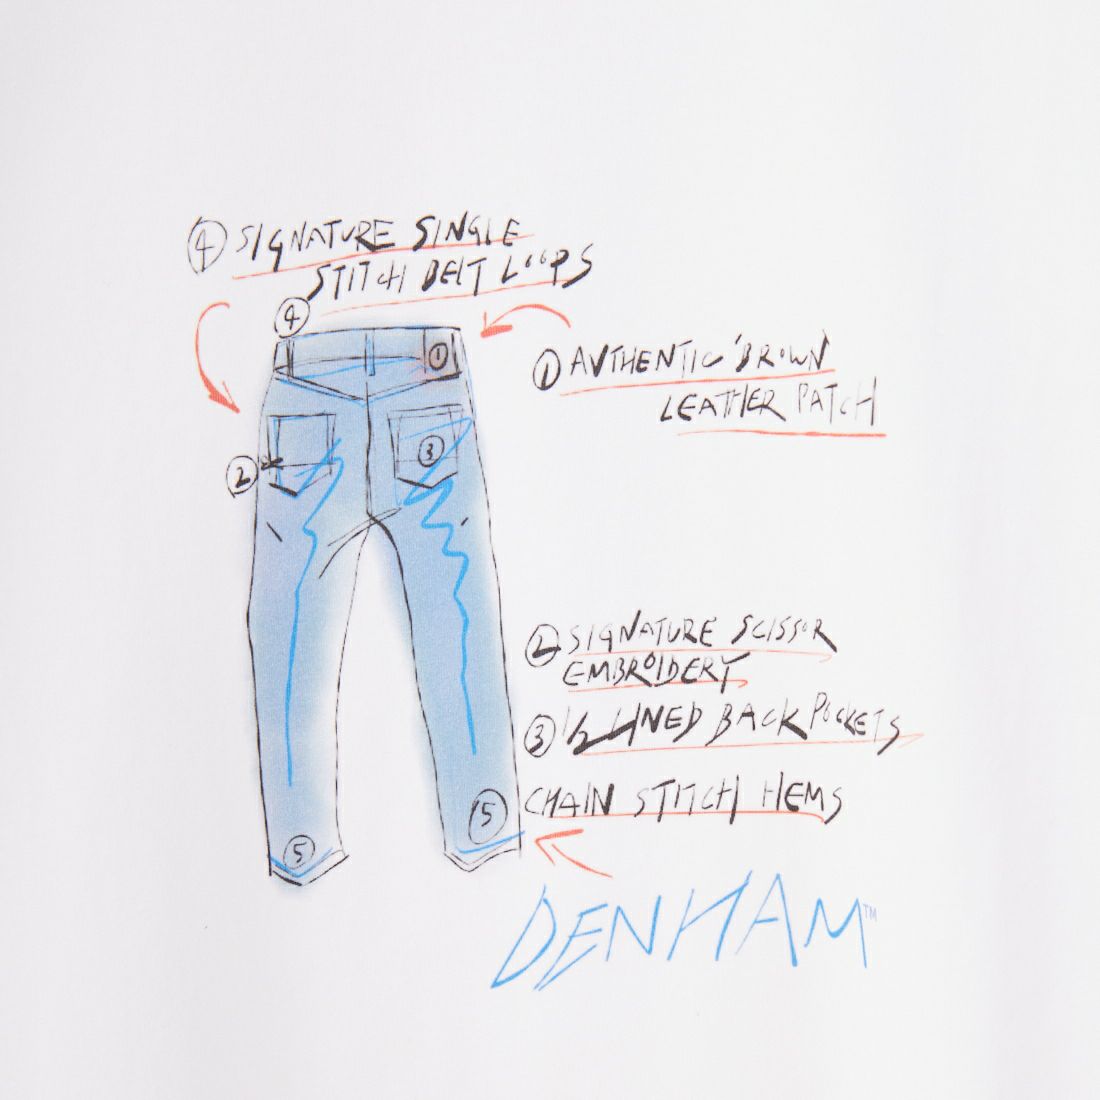 ④ SIGNATURE SINGLE
STITCH BELT LOOPS
④
①
① AUTHENTIC BROWN
LEATHER PATCH
③
②
② SIGNATURE SCISSOR
EMBROIDERY
③ 1/2 LINED BACK POCKETS
⑤ CHAIN STITCH HEMS
⑤
DENHAM™